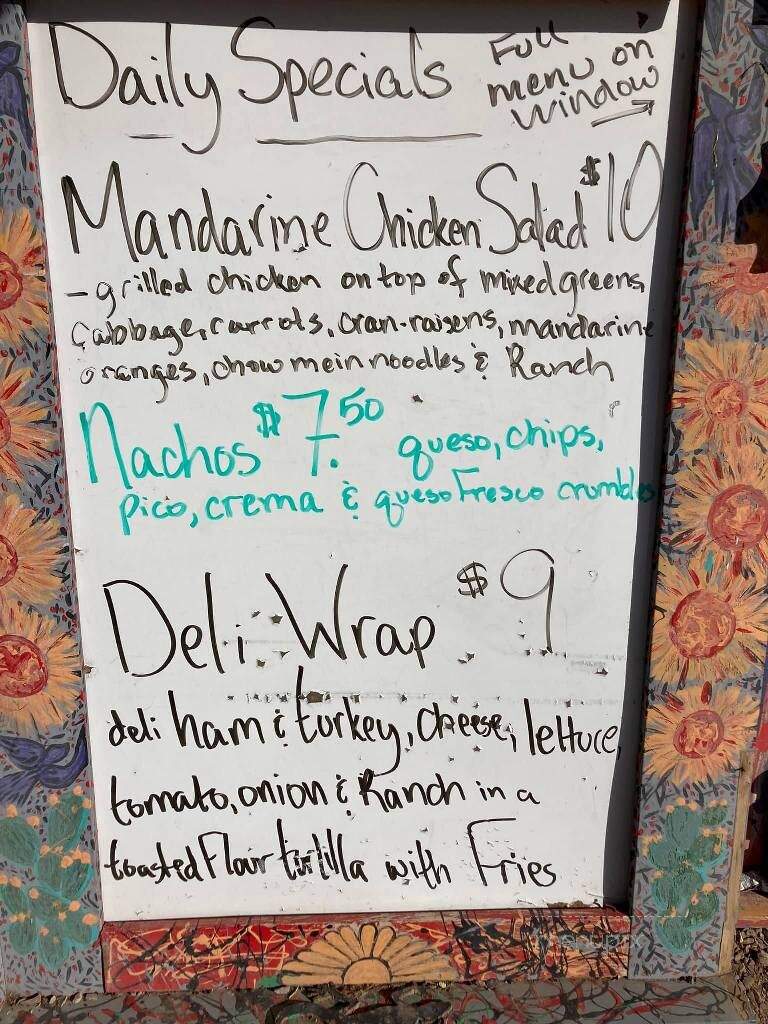 Daily Specials
Full
menu on
window
Mandarine Chicken Salad $10
- grilled chicken on top of mixed greens
cabbage, carrots, cran-raisens, mandarine
oranges, chow mein noodles & Ranch
Nachos $7.50 queso, chips,
pico, crema & queso Fresco crumbles
Deli Wrap $9
deli ham & turkey, cheese, lettuce,
tomato, onion & Ranch in a
toasted Flour tortilla with Fries